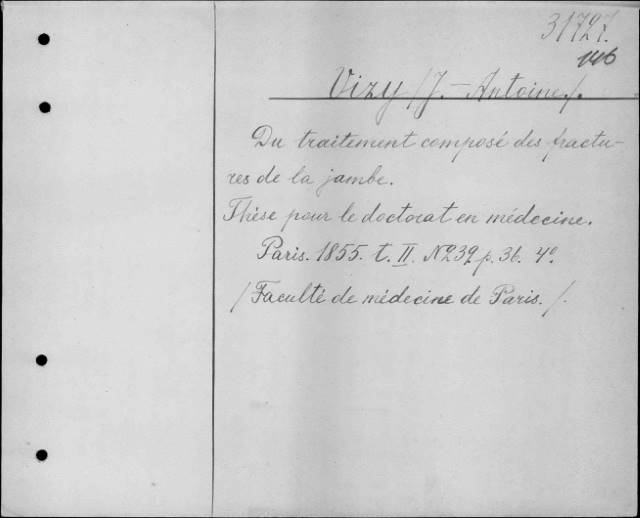 31727.
146
Vizy /J.-Antoine/.
Du traitement composé des fractu-
res de la jambe.
Thèse pour le doctorat en médecine.
Paris. 1855. t. II. № 239 p. 36. 4º.
/Faculté de médecine de Paris./.